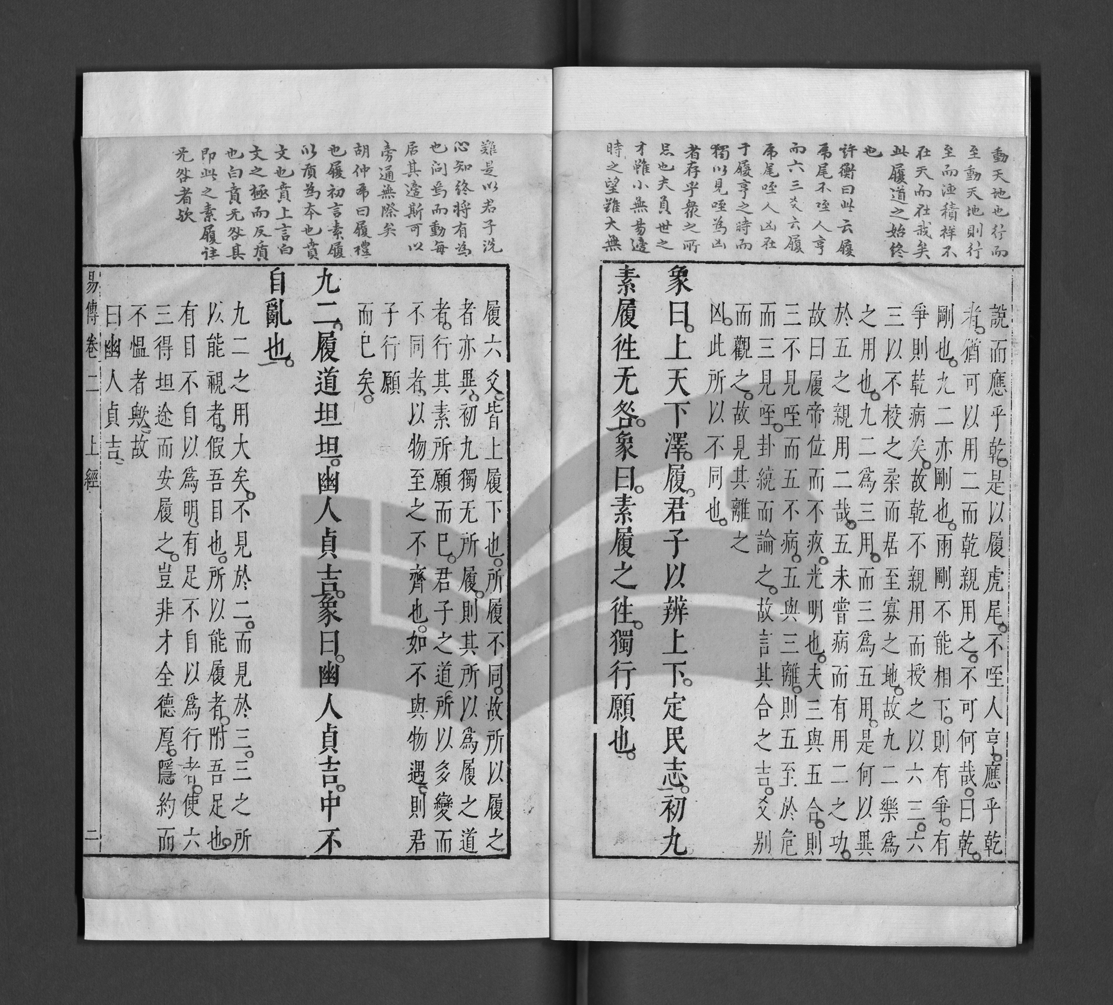 動天地也行而
至動天地則行
至而涯積祥不
在天而在我矣
此履道之始終
也
許衡曰此云履
虎尾不咥人亨
而六三爻云履
虎尾咥人凶在
于履亨之時而
獨以見咥為凶
者存乎衆之所
忌也夫負世之
才雖小無易邊
時之望雖大無
說而應乎乾是以履虎尾不咥人亨應乎乾
者猶可以用二而乾親用之不可何哉曰乾
剛也九二亦剛也兩剛不能相下則有爭有
爭則乾病矣故乾不親用而授之以六三六
三以不校之柔而居至寡之地故九二樂爲
之用也九二爲三用而三爲五用是何以異
於五之親用二哉五未嘗病而有用二之功
故曰履帝位而不疚光明也夫三與五合則
三不見咥而五不病五與三離則五至於危
而三見咥卦統而論之故言其合之吉爻别
而觀之故見其離之
凶此所以不同也
象曰上天下澤履君子以辨上下定民志初九
素履徃无咎象曰素履之徃獨行願也
難是以君子洗
心知終將有為
也问焉而動每
居其邊斯可以
旁通無際矣
胡仲虎曰履禮
也履初言素履
以質為本也賁
文也賁上言白
文之極而反質
也白賁无咎其
即此之素履往
无咎者欤
履六爻皆上履下也所履不同故所以履之
者亦異初九獨无所履則其所以爲履之道
者行其素所願而已君子之道所以多變而
不同者以物至之不齊也如不與物遇則君
子行願
而已矣
九二履道坦坦幽人貞吉象曰幽人貞吉中不
自亂也
九二之用大矣不見於二而見於三三之所
以能視者假吾目也所以能履者附吾足也
有目不自以爲明有足不自以爲行者使六
三得坦途而安履之豈非才全德厚隱約而
不慍者歟故
曰幽人貞吉
易傳卷二 上經 二